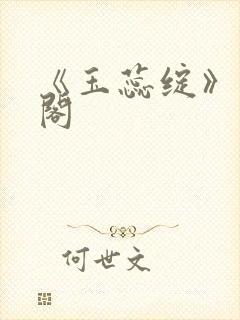 《玉蕊绽》
阁
何世文